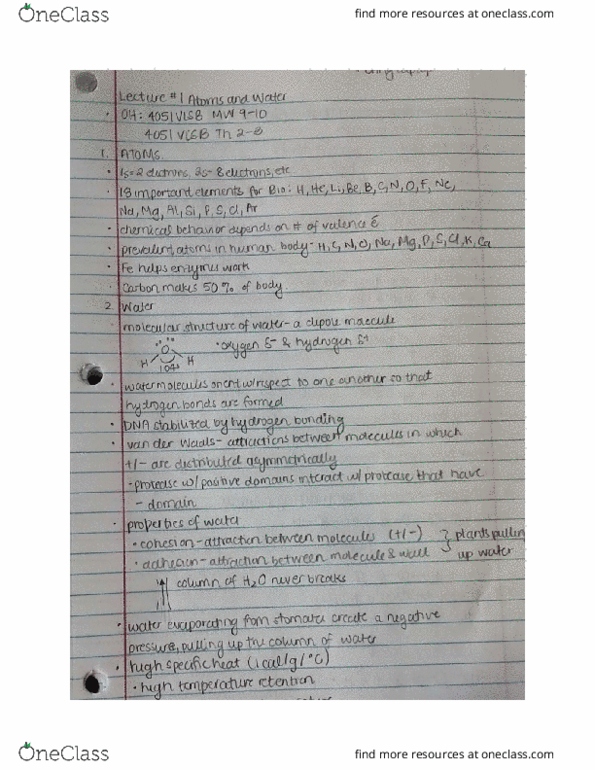 OneClass
find more resources at oneclass.com
Lecture #1 Atoms and Water
· OH: 4051 VLSB MW 9-10
4051 VLSB Th 2-3
1. ATOMS
· 1s=2 electrons, 2s- 8 electrons, etc
· 18 important elements for Bio: H, He, Li, Be, B, C, N, O, F, Ne,
Na, Mg, Al, Si, P, S, Cl, Ar
· chemical behavior depends on # of valence e⁻
· prevalent atoms in human body- H, C, N, O, Na, Mg, P, S, Cl, K, Ca
· Fe helps enzymes work
· Carbon makes 50% of body
2. Water
· molecular structure of water- a dipole molecule
O
· oxygen δ⁻ & hydrogen δ⁺
H H
104
· water molecules orient w/respect to one another so that
hydrogen bonds are formed
· DNA stabilized by hydrogen bonding
· van der Waals- attractions between molecules in which
+/- are distributed asymmetrically
· protease w/ positive domains interact w/ protease that have
- domain
· properties of water
· cohesion- attraction between molecules (+/-) } plants pulling
· adhesion- attraction between molecule & wall up water
column of H₂O never breaks
· water evaporating from stomates create a negative
pressure, pulling up the column of water
· high specific heat (1cal/g/°C)
· high temperature retention
OneClass
find more resources at oneclass.com